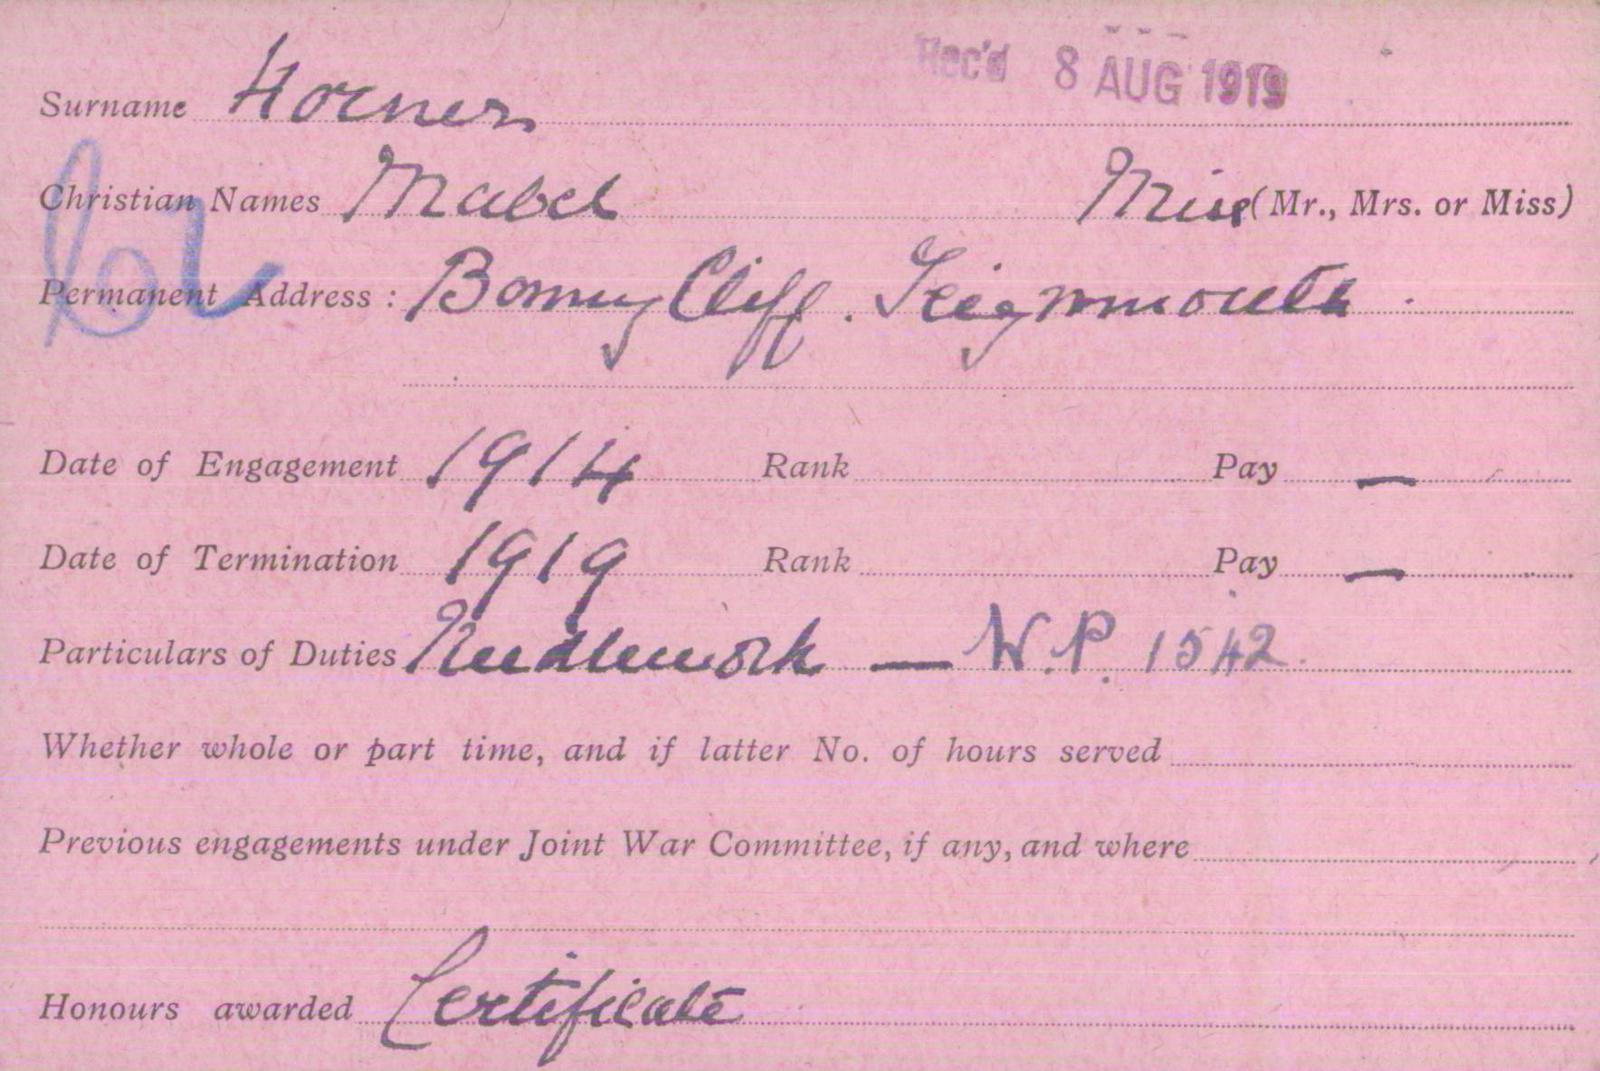 Rec'd 8 AUG 1919
Surname Horner
Christian Names Mabel Miss (Mr., Mrs. or Miss)
Permanent Address : Bonny Cliff. Teignmouth.
Date of Engagement 1914 Rank Pay —
Date of Termination 1919 Rank Pay —
Particulars of Duties Needlework — W.P. 1542.
Whether whole or part time, and if latter No. of hours served
Previous engagements under Joint War Committee, if any, and where
Honours awarded Certificate